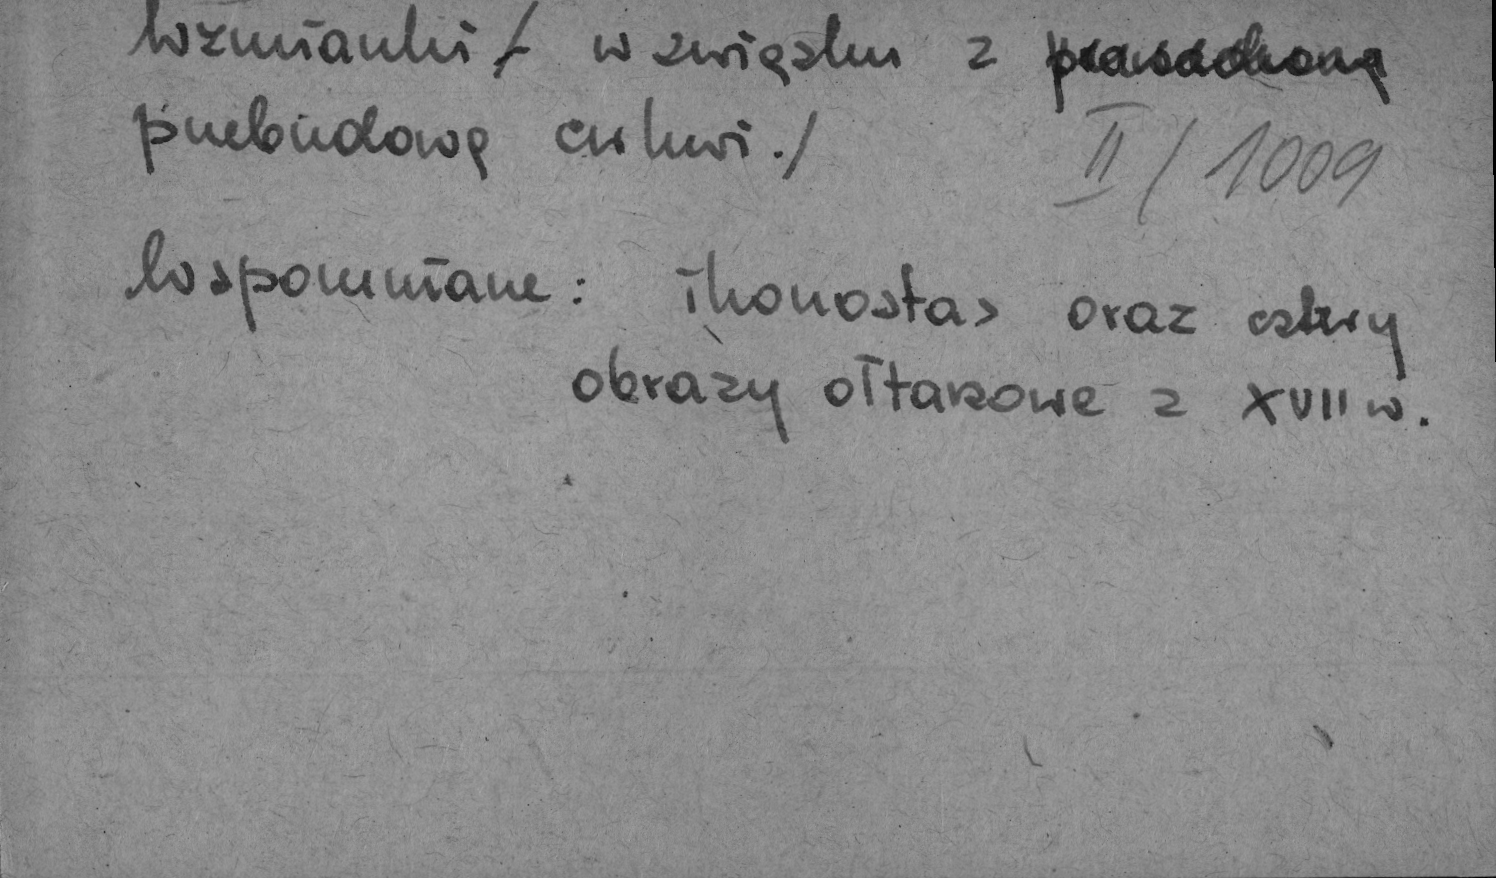 Wzmianki / w związku z
przebudową cerkwi./
II / 1009
Wspomniane: ikonostas oraz cztery
obrazy ołtarzowe z XVII w.